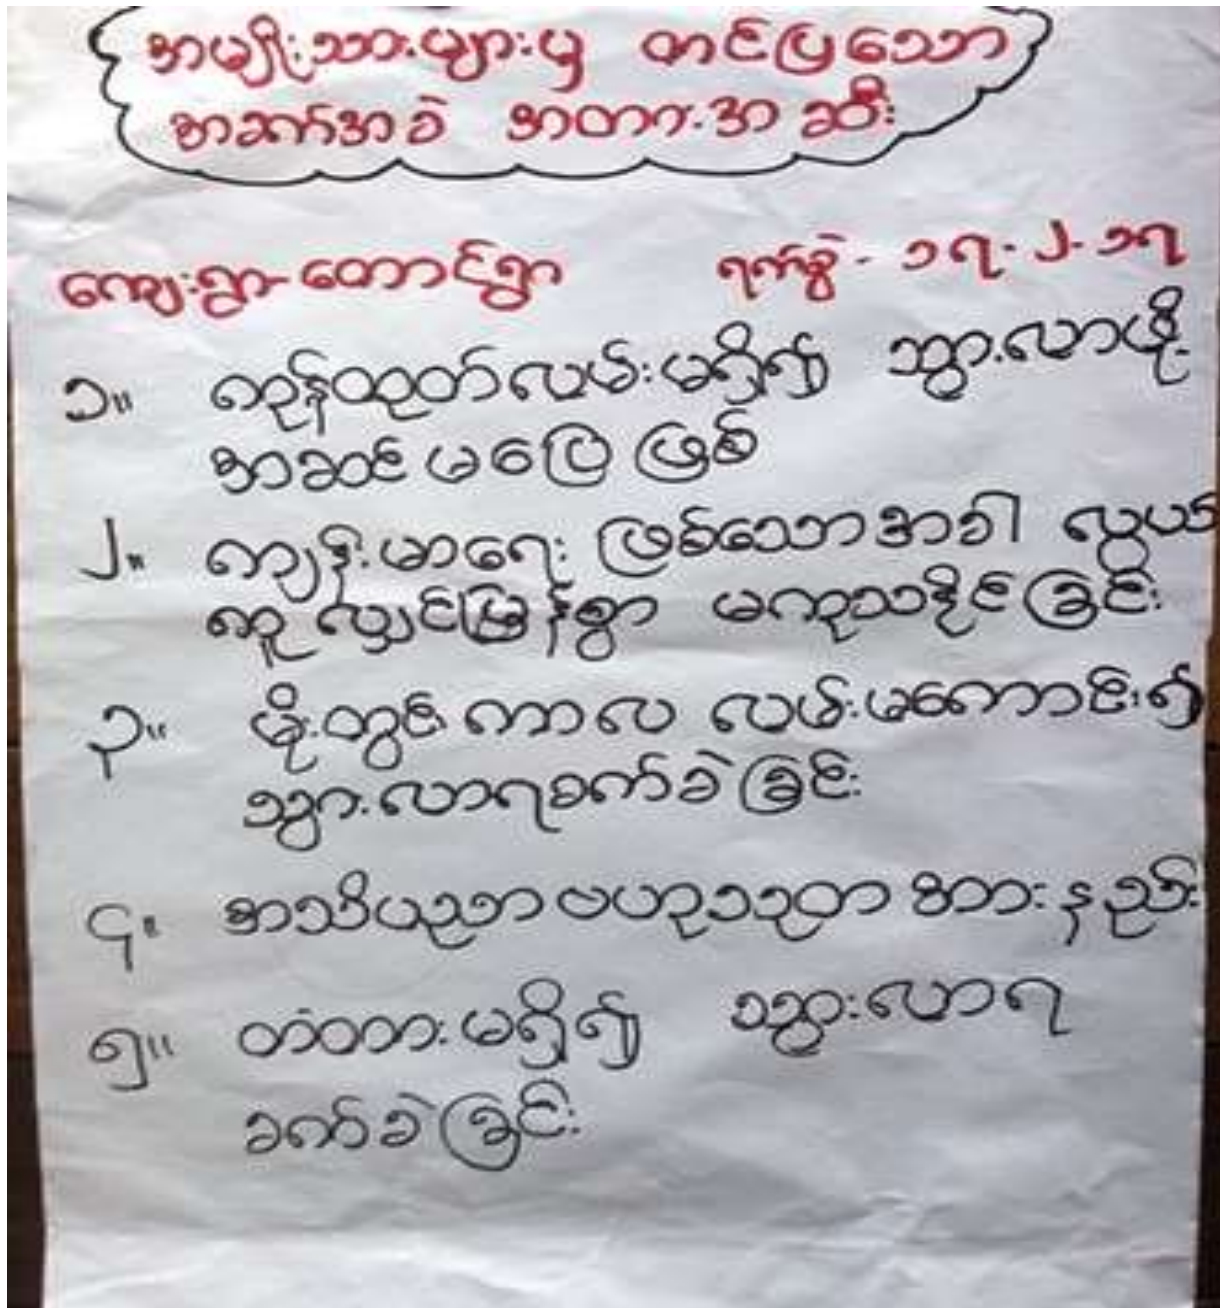 အမျိုးသားများမှ တင်ပြသော
အခက်အခဲ အတားအဆီး
ကျေးရွာ-တောင်ရွာ ရက်စွဲ - ၁၇-၂-၁၇
၁။ ကုန်ထုတ်လမ်းမရှိ၍ သွားလာဖို့
အဆင်မပြေဖြစ်
၂။ ကျန်းမာရေး ဖြစ်သောအခါ လွယ်
ကူလျှင်မြန်စွာ မကုသနိုင်ခြင်း
၃။ မိုးတွင်းကာလ လမ်းမကောင်း၍
သွားလာရခက်ခဲခြင်း
၄။ အသိပညာဗဟုသုတ အားနည်း
၅။ တံတားမရှိ၍ သွားလာရ
ခက်ခဲခြင်း